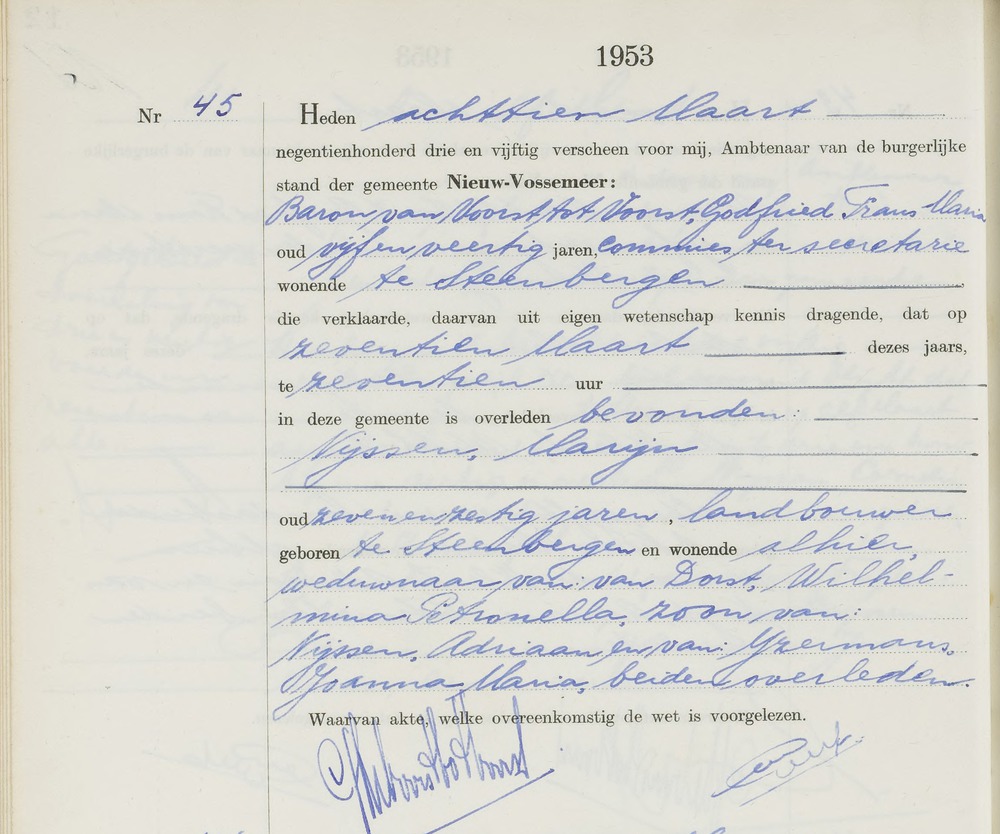 1953
Nr 45 Heden achttien Maart
negentienhonderd drie en vijftig verscheen voor mij, Ambtenaar van de burgerlijke
stand der gemeente Nieuw-Vossemeer:
Baron van Voorst tot Voorst, Godfried Frans Maria
oud vijf en veertig jaren, commies ter secretarie
wonende te Steenbergen
die verklaarde, daarvan uit eigen wetenschap kennis dragende, dat op
zeventien Maart dezes jaars,
te zeventien uur
in deze gemeente is overleden bevonden:
Nijssen, Marijn
oud zeven en zestig jaren, landbouwer
geboren te Steenbergen en wonende alhier,
weduwnaar van: van Dorst, Wilhel-
mina Petronella, zoon van:
Nijssen, Adriaan en van: IJzermans,
Joanna Maria, beiden overleden.
Waarvan akte, welke overeenkomstig de wet is voorgelezen.